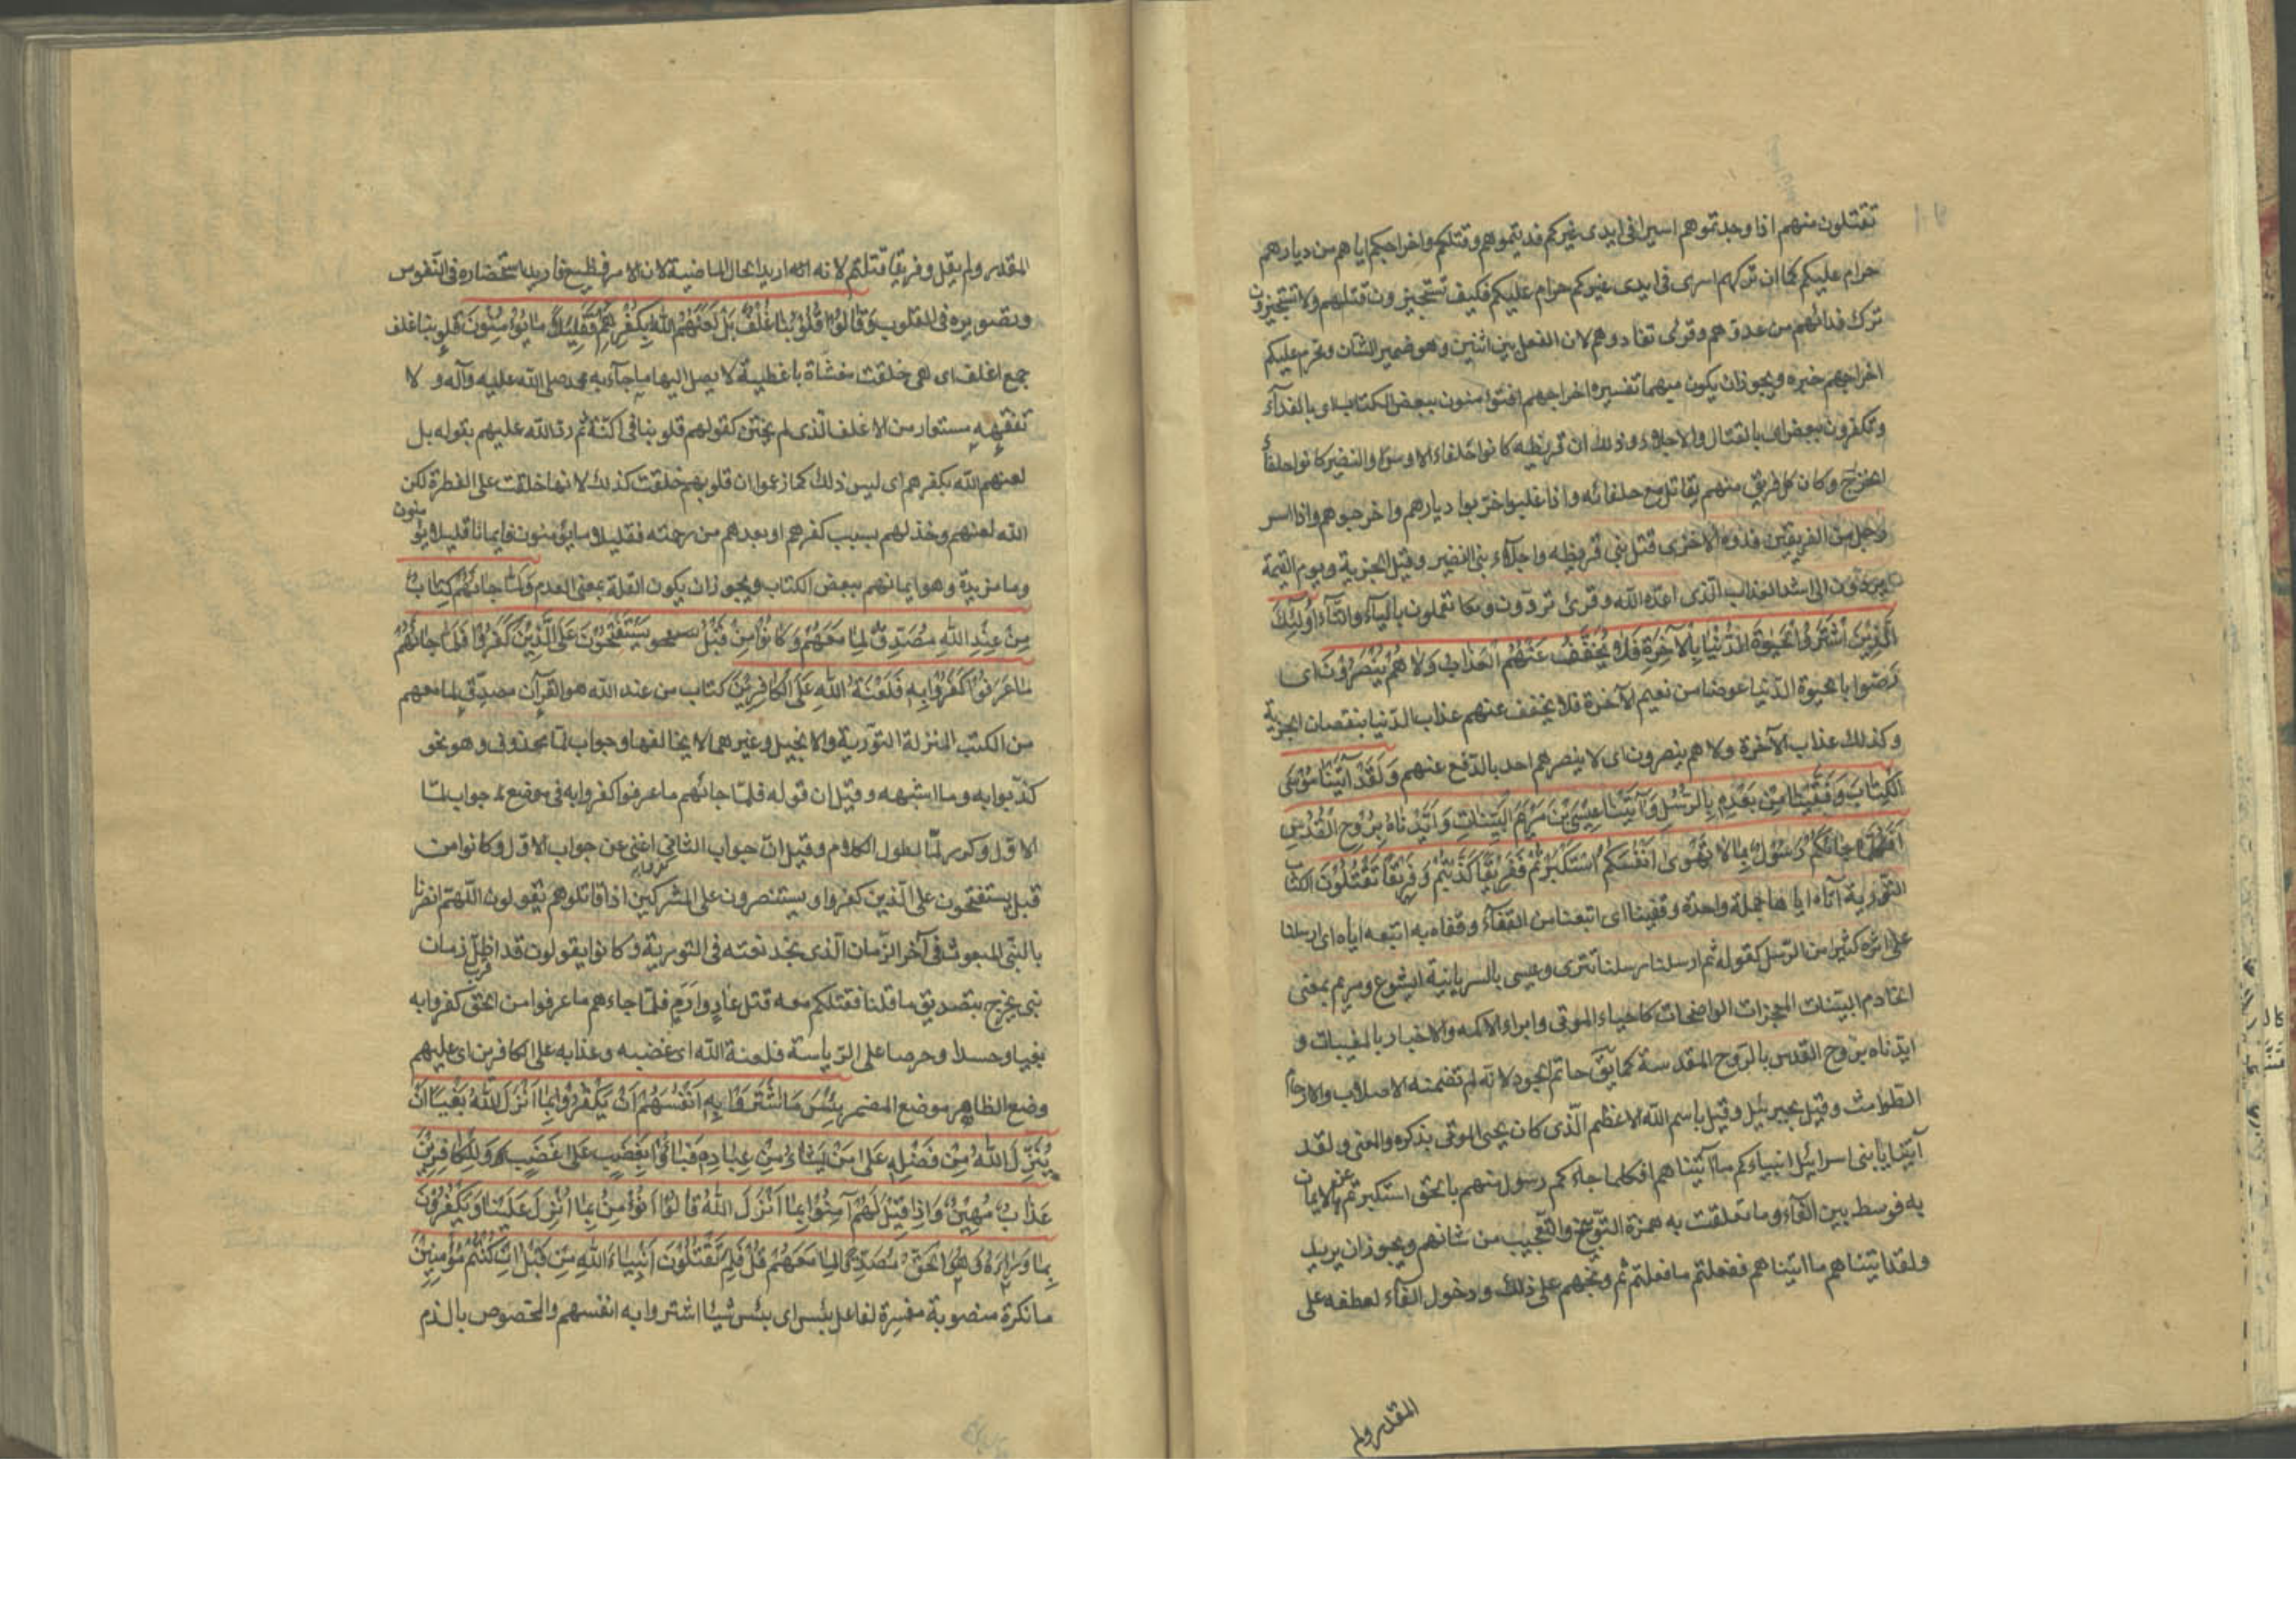 تقتلون منهم اذا وجدتموهم اسيرا فى ايدى غيركم فديتموهم وقتلكم واخراجكم اياهم من ديارهم
حرام عليكم كما ان تركهم اسرى فى ايدى غيركم حرام عليكم فكيف تستجيزون قتلهم ولا تستجيزون
ترك فدائهم من عدوهم وقرئ تفادوهم لان الفعل بين اثنين وهو ضمير الشان ومحرم عليكم
اخراجهم خبره ويجوز ان يكون مبهما تفسيره اخراجهم افتؤمنون ببعض الكتاب اى بالفدآء
وتكفرون ببعض اى بالقتال والاجلاء وذلك ان قريظه كانوا حلفاء الاوس والنضير كانوا حلفآء
الخزرج وكان كل فريق منهم يقاتل مع حلفائه واذا غلبوا خرّبوا ديارهم واخرجوهم واذا اسر
رجل من الفريقين فدوه الاخزى قتل بنى قريظه واجلاء بنى النضير وقيل الجزية ويوم القيمة
يردّون الى اشد العذاب الذى اعدّه الله وقرئ تردّون وعما تعملون بالياء والتآء اُولٰئِكَ
الَّذِينَ اشْتَرَوُا الْحَيٰوةَ الدُّنْيَا بِالْآخِرَةِ فَلَا يُخَفَّفُ عَنْهُمُ الْعَذَابُ وَلَا هُمْ يُنْصَرُونَ اى
رضوا بالحيوة الدّنيا عوضا من نعيم الآخرة فلا يخفف عنهم عذاب الدّنيا بنقصان الجزية
وكذلك عذاب الآخرة ولا هم ينصرون اى لا ينصرهم احد بالدّفع عنهم وَلَقَدْ آتَيْنَا مُوسَى
الْكِتَابَ وَقَفَّيْنَا مِنْ بَعْدِهِ بِالرُّسُلِ وَآتَيْنَا عِيسَى بْنَ مَرْيَمَ الْبَيِّنَاتِ وَاَيَّدْنَاهُ بِرُوحِ الْقُدُسِ
اَفَكُلَّمَا جَائَكُمْ رَسُولٌ بِمَا لَا تَهْوٰى اَنْفُسُكُمُ اسْتَكْبَرْتُمْ فَفَرِيقًا كَذَّبْتُمْ وَفَرِيقًا تَقْتُلُونَ الكتاب
التّورية آتاه اياها جملة واحدة وقفينا اى اتبعنا من القفآء وقفاه به اتبعه اياه اى ارسلنا
على اثره كثيرا من الرّسل كقوله ثم ارسلنا رسلنا تترى وعيسى بالسريانية ايشوع ومريم بمعنى
الخادم البيّنات المعجزات الواضحات كاحياء الموتى وابراء الاكمه والاخبار بالمغيبات و
ايّدناه بروح القدس بالرّوح المقدسة كما يق حاتم الجود لانه لم تضمنه الاصلاب والارحام
الطوامث وقيل بجبرئيل وقيل باسم الله الاعظم الّذى كان يحيى الموتى بذكره والمعنى ولقد
آتينا يا بنى اسرائيل انبياءكم ما آتيناهم افكلما جاءكم رسول منهم بالحق استكبرتم عن الايمان
به فوسط بين الفآء وما تعلقت به همزة التّوبيخ والتّعجيب من شانهم ويجوز ان يريد
ولقد اتيناهم ما اتيناهم ففعلتم ما فعلتم ثم وبّخهم على ذلك ودخول الفآء لعطفه على
المقدر ولم
المقدر ولم يقل وفريقا قتلتم لانه اريد الحال الماضية لان الامر فظيع فاريد استحضاره فى النّفوس
وتصويره فى القلوب وَقَالُوا قُلُوبُنَا غُلْفٌ بَلْ لَعَنَهُمُ اللهُ بِكُفْرِهِمْ فَقَلِيلًا مَا يُؤْمِنُونَ قلوبنا غلف
جمع اغلف اى هى خلقت مغشاة باغطية لا يصل اليها ما جآء به محمد صلى الله عليه وآله و لا
تفقهه مستعار من الاغلف الّذى لم يختن كقولهم قلوبنا فى اكنّة ثم ردّ الله عليهم بقوله بل
لعنهم الله بكفرهم اى ليس ذلك كما زعموا ان قلوبهم خلقت كذلك لانها خلقت على الفطرة لكن
الله لعنهم وخذلهم بسبب كفرهم او بعدهم من رحمته فقليلا ما يؤمنون فايمانا قليلا يؤمنون
وما مزيدة وهو ايمانهم ببعض الكتاب ويجوز ان يكون القلة بمعنى العدم وَلَمَّا جَائَهُمْ كِتَابٌ
مِنْ عِنْدِ اللهِ مُصَدِّقٌ لِمَا مَعَهُمْ وَكَانُوا مِنْ قَبْلُ يَسْتَفْتِحُونَ عَلَى الَّذِينَ كَفَرُوا فَلَمَّا جَائَهُمْ
مَا عَرَفُوا كَفَرُوا بِهِ فَلَعْنَةُ اللهِ عَلَى الْكَافِرِينَ كتاب من عند الله هو القرآن مصدّق لما معهم
من الكتب المنزلة التّورية والانجيل وغيرهما لا يخالفها وجواب لمّا محذوف وهو نحو
كذّبوا به وما اشبهه وقيل ان قوله فلمّا جائهم ما عرفوا كفروا به فى موضع جواب لمّا
الاوّل وكرر لمّا لطول الكلام وقيل انّ جواب الثانى اغنى عن جواب الاوّل وكانوا من
قبل يستفتحون على الّذين كفروا ويستنصرون على المشركين اذا قاتلوهم يقولون اللّهمّ انصرنا
بالنبّى المبعوث فى آخر الزّمان الّذى نجد نعته فى التورية وكانوا يقولون قد اظلّ زمان
قرب
نبى يخرج بتصديق ما قلنا فنقتلكم معه قتل عادٍ وارمٍ فلمّا جاءهم ما عرفوا من الحق كفروا به
بغيا وحسدا وحرصا على الرّياسة فلعنة الله اى غضبه وعذابه على الكافرين اى عليهم
وضع الظاهر موضع المضمر بِئْسَ مَا اشْتَرَوْا بِهِ اَنْفُسَهُمْ اَنْ يَكْفُرُوا بِمَا اَنْزَلَ اللهُ بَغْيًا اَنْ
يُنَزِّلَ اللهُ مِنْ فَضْلِهِ عَلَى مَنْ يَشَاءُ مِنْ عِبَادِهِ فَبَائُوا بِغَضَبٍ عَلَى غَضَبٍ وَلِلْكَافِرِينَ
عَذَابٌ مُهِينٌ وَاِذَا قِيلَ لَهُمْ آمِنُوا بِمَا اَنْزَلَ اللهُ قَالُوا نُؤْمِنُ بِمَا اُنْزِلَ عَلَيْنَا وَيَكْفُرُونَ
بِمَا وَرَاءَهُ وَهُوَ الْحَقُّ مُصَدِّقًا لِمَا مَعَهُمْ قُلْ فَلِمَ تَقْتُلُونَ اَنْبِيَاءَ اللهِ مِنْ قَبْلُ اِنْ كُنْتُمْ مُؤْمِنِينَ
ما نكرة منصوبة مفسرة لفاعل بئس اى بئس شيئا اشتروا به انفسهم والمخصوص بالذم